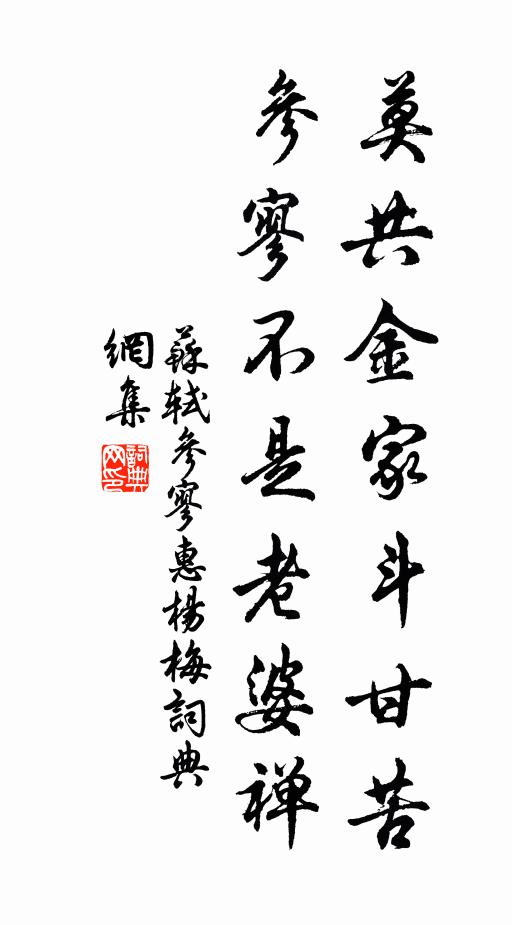 莫共金家斗甘苦
參寥不是老婆禅
蘇軾參寥惠楊梅詞典
網集
詞典网印